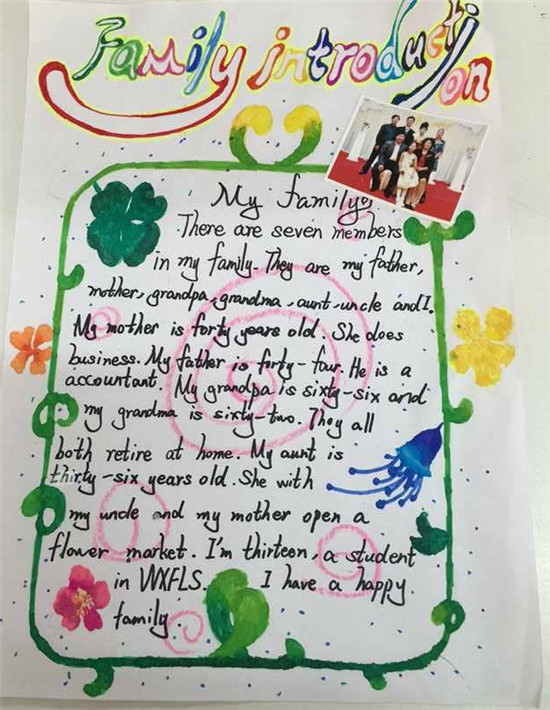 Family introduction
My family
There are seven members
in my family. They are my father,
mother, grandpa, grandma, aunt, uncle and I.
My mother is forty years old. She does
business. My father is forty-four. He is a
accountant. My grandpa is sixty-six and
my grandma is sixty-two. They all
both retire at home. My aunt is
thirty-six years old. She with
my uncle and my mother open a
flower market. I'm thirteen, a student
in WXFLS. I have a happy
family.